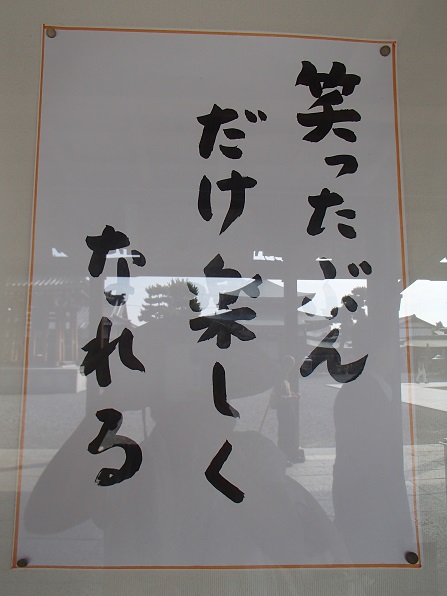 笑ったぶん
だけ楽しく
なれる